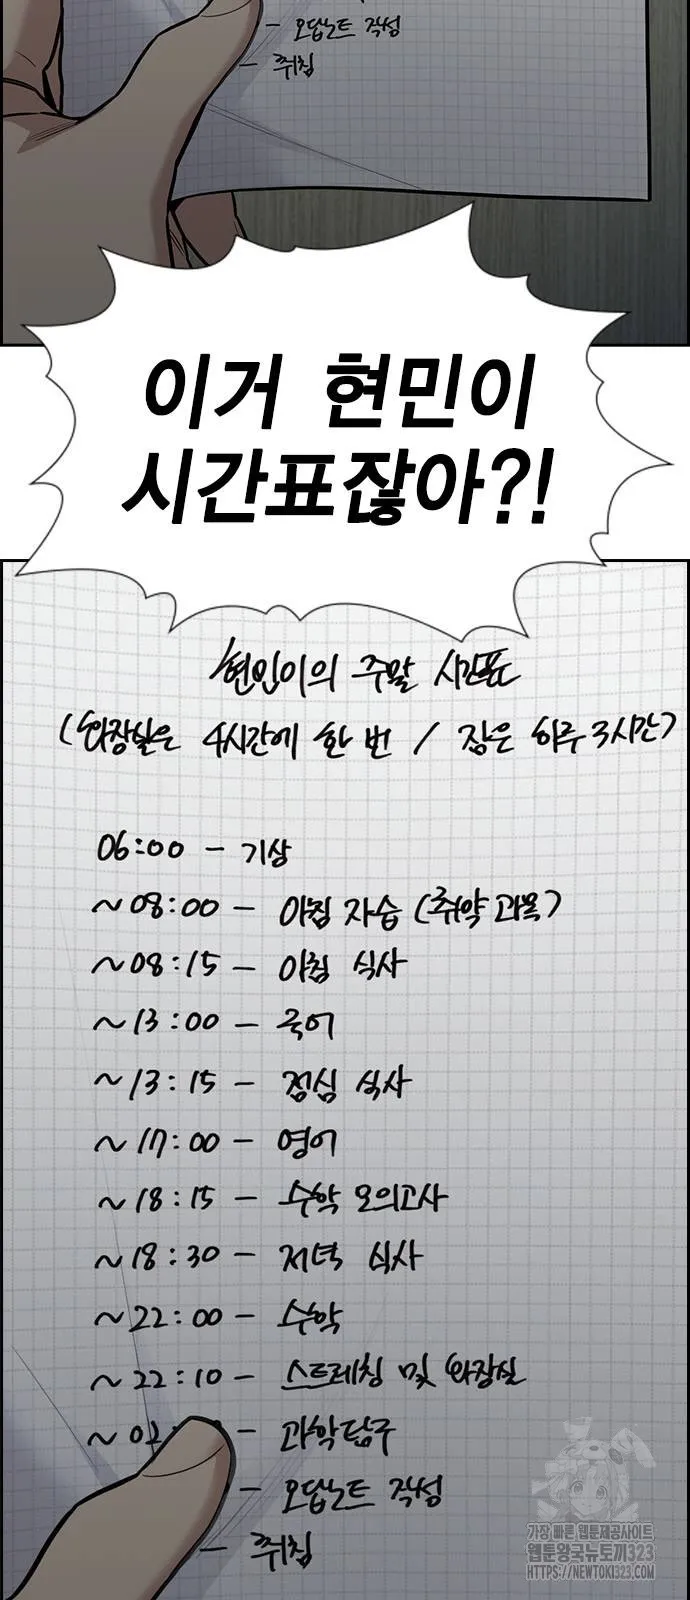 - 오답노트 작성
- 취침
이거 현민이
시간표잖아?!
현민이의 주말 시간표
(화장실은 4시간에 한 번 / 잠은 하루 3시간)
06:00 - 기상
~08:00 - 아침 자습 (취약 과목)
~08:15 - 아침 식사
~13:00 - 국어
~13:15 - 점심 식사
~17:00 - 영어
~18:15 - 수학 모의고사
~18:30 - 저녁 식사
~22:00 - 수학
~22:10 - 스트레칭 및 화장실
~02: - 과학탐구
- 오답노트 작성
- 취침
가장 빠른 웹툰제공사이트
웹툰왕국뉴토끼323
HTTPS://NEWTOKI323.COM